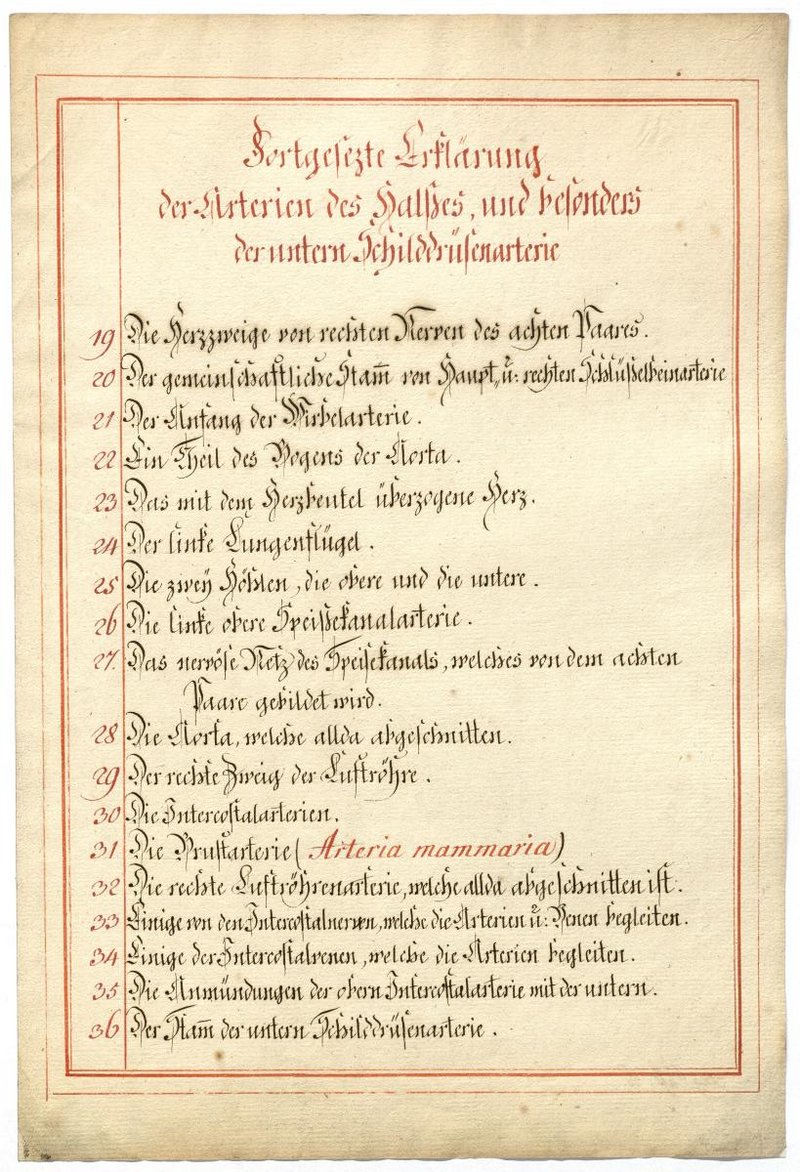 Fortgesezte Erklärung
der Arterien des Halßes, und besonders
der untern Schilddrüsenarterie
19 Die Herzzweige von rechten Nerven des achten Paares.
20 Der gemeinschaftliche Stam̅ von Haupt„ u: rechten Schlüßelbeinarterie
21 Der Anfang der Wirbelarterie.
22 Ein Theil des Bogens der Aorta.
23 Das mit dem Herzbeutel überzogene Herz.
24 Der linke Lungenflügel.
25 Die zwey Höhlen, die obere und die untere.
26 Die linke obere Speißekanalarterie.
27. Das nervöse Netz des Speisekanals, welches von dem achten
Paare gebildet wird.
28 Die Aorta, welche allda abgeschnitten.
29 Der rechte Zweig der Luftröhre.
30 Die Intercostalarterien.
31 Die Brustarterie (Arteria mammaria)
32 Die rechte Luftröhrenarterie, welche allda abgeschnitten ist.
33 Einige von den Intercostalnerven, welche die Arterien u: Venen begleiten.
34 Einige der Intercostalvenen, welche die Arterien begleiten.
35 Die Anmündungen der obern Intercostalarterie mit der untern.
36 Der Stam̅ der untern Schilddrüsenarterie.